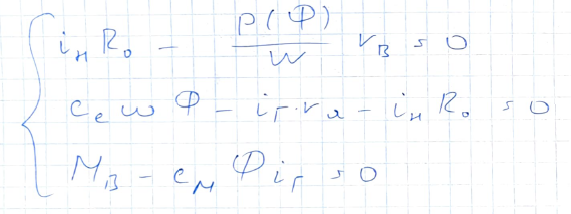 i_н R_0 - P(Ф)/W r_B = 0
c_e ω Ф - i_г · r_a - i_н R_0 = 0
M_B - c_M Ф i_г = 0